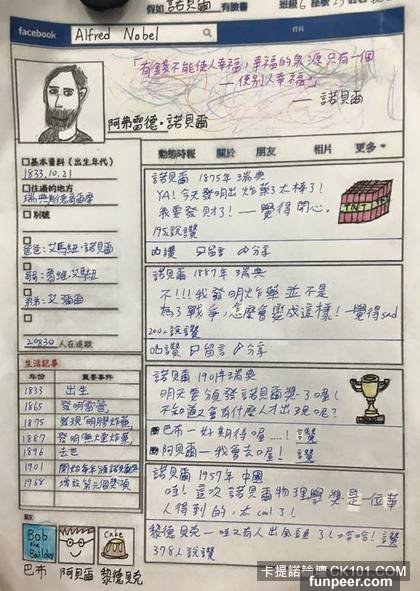 假如 諾貝爾 有臉書
班級 6 座號 25
facebook
Alfred Nobel
「有錢不能使人幸福，幸福的泉源只有一個
—使別人幸福。」
——諾貝爾
阿弗雷德·諾貝爾
動態時報 關於 朋友 相片 更多
基本資料（出生年代）
1833.10.21
住過的地方
瑞典斯德哥爾摩
別號
爸爸:艾馬紐·諾貝爾
弟弟:艾彌爾
20830 人在追蹤
生活記事
年份 重要事件
1833 出生
1865 發明雷管
1875 發現明膠炸藥
1887 發明無煙炸藥
1896 去世
1901 開始每年頒諾貝爾獎
1968 增設第六個獎項
Bob the Builder
Cake
巴布 阿貝爾 黎德貝克
諾貝爾 1875年 瑞典
YA!今天發明出炸藥3太棒了!
我要發財了!—覺得開心。
195說讚
讚 留言 分享
諾貝爾 1887年 瑞典
不!!!我發明炸藥並不是
為了戰爭，怎麼會變成這樣!—覺得sad
2002說讚
讚 留言 分享
諾貝爾 1901年 瑞典
明天要頒發諾貝爾獎了喔!
不知道又會有什麼人才出現呢?
巴布—好期待喔……! 讚
阿貝爾—我會去喔! 讚
諾貝爾 1957年 中國
哇!這次諾貝爾物理學獎是一位華
人得到的，太cool了!
黎德貝克—哇又有人出風頭了!哈哈! 讚
378人說讚
卡提諾論壇 CK101.COM
funpeer.com